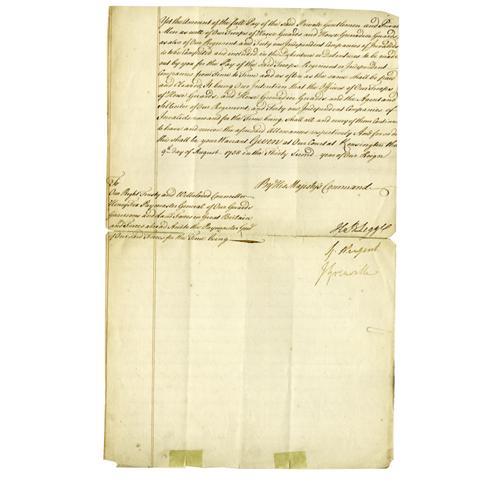 the Amount of the full Pay of the said Private Gentlemen and Private
Men as well of Our Troops of Horse Guards and Horse Grenadier Guards
as also of Our Regiment and Sixty Independent Companys of Invalids
is to be Comprized and included in the Debentures to be made
out by you for the Pay of the said Troops Regiment & Independent
Companies from time to time and as often as the same shall be
and Cleared, It being Our Intention that the Officers of Our Troops
of Horse Guards, and Horse Grenadier Guards and the Agent and
Solicitor of Our Regiment, and Sixty Independent Companies of
Invalids now and for the Time being Shall all and every of them Continue
to have and receive the aforesaid Allowances respectively And for so doing
this shall be your Warrant Given at Our Court at Kensington this
9th day of August 1758 in the Thirty Second year of Our Reign
By His Majestys Command
To
Our Right Trusty and Welbeloved Councellor
Henry Fox Paymaster General of Our Guards
Garrisons and Land Forces in Great Britain
and Forces abroad And to the Paymaster Genl
of Our said Forces for the Time being
H B Legge
J Grenville